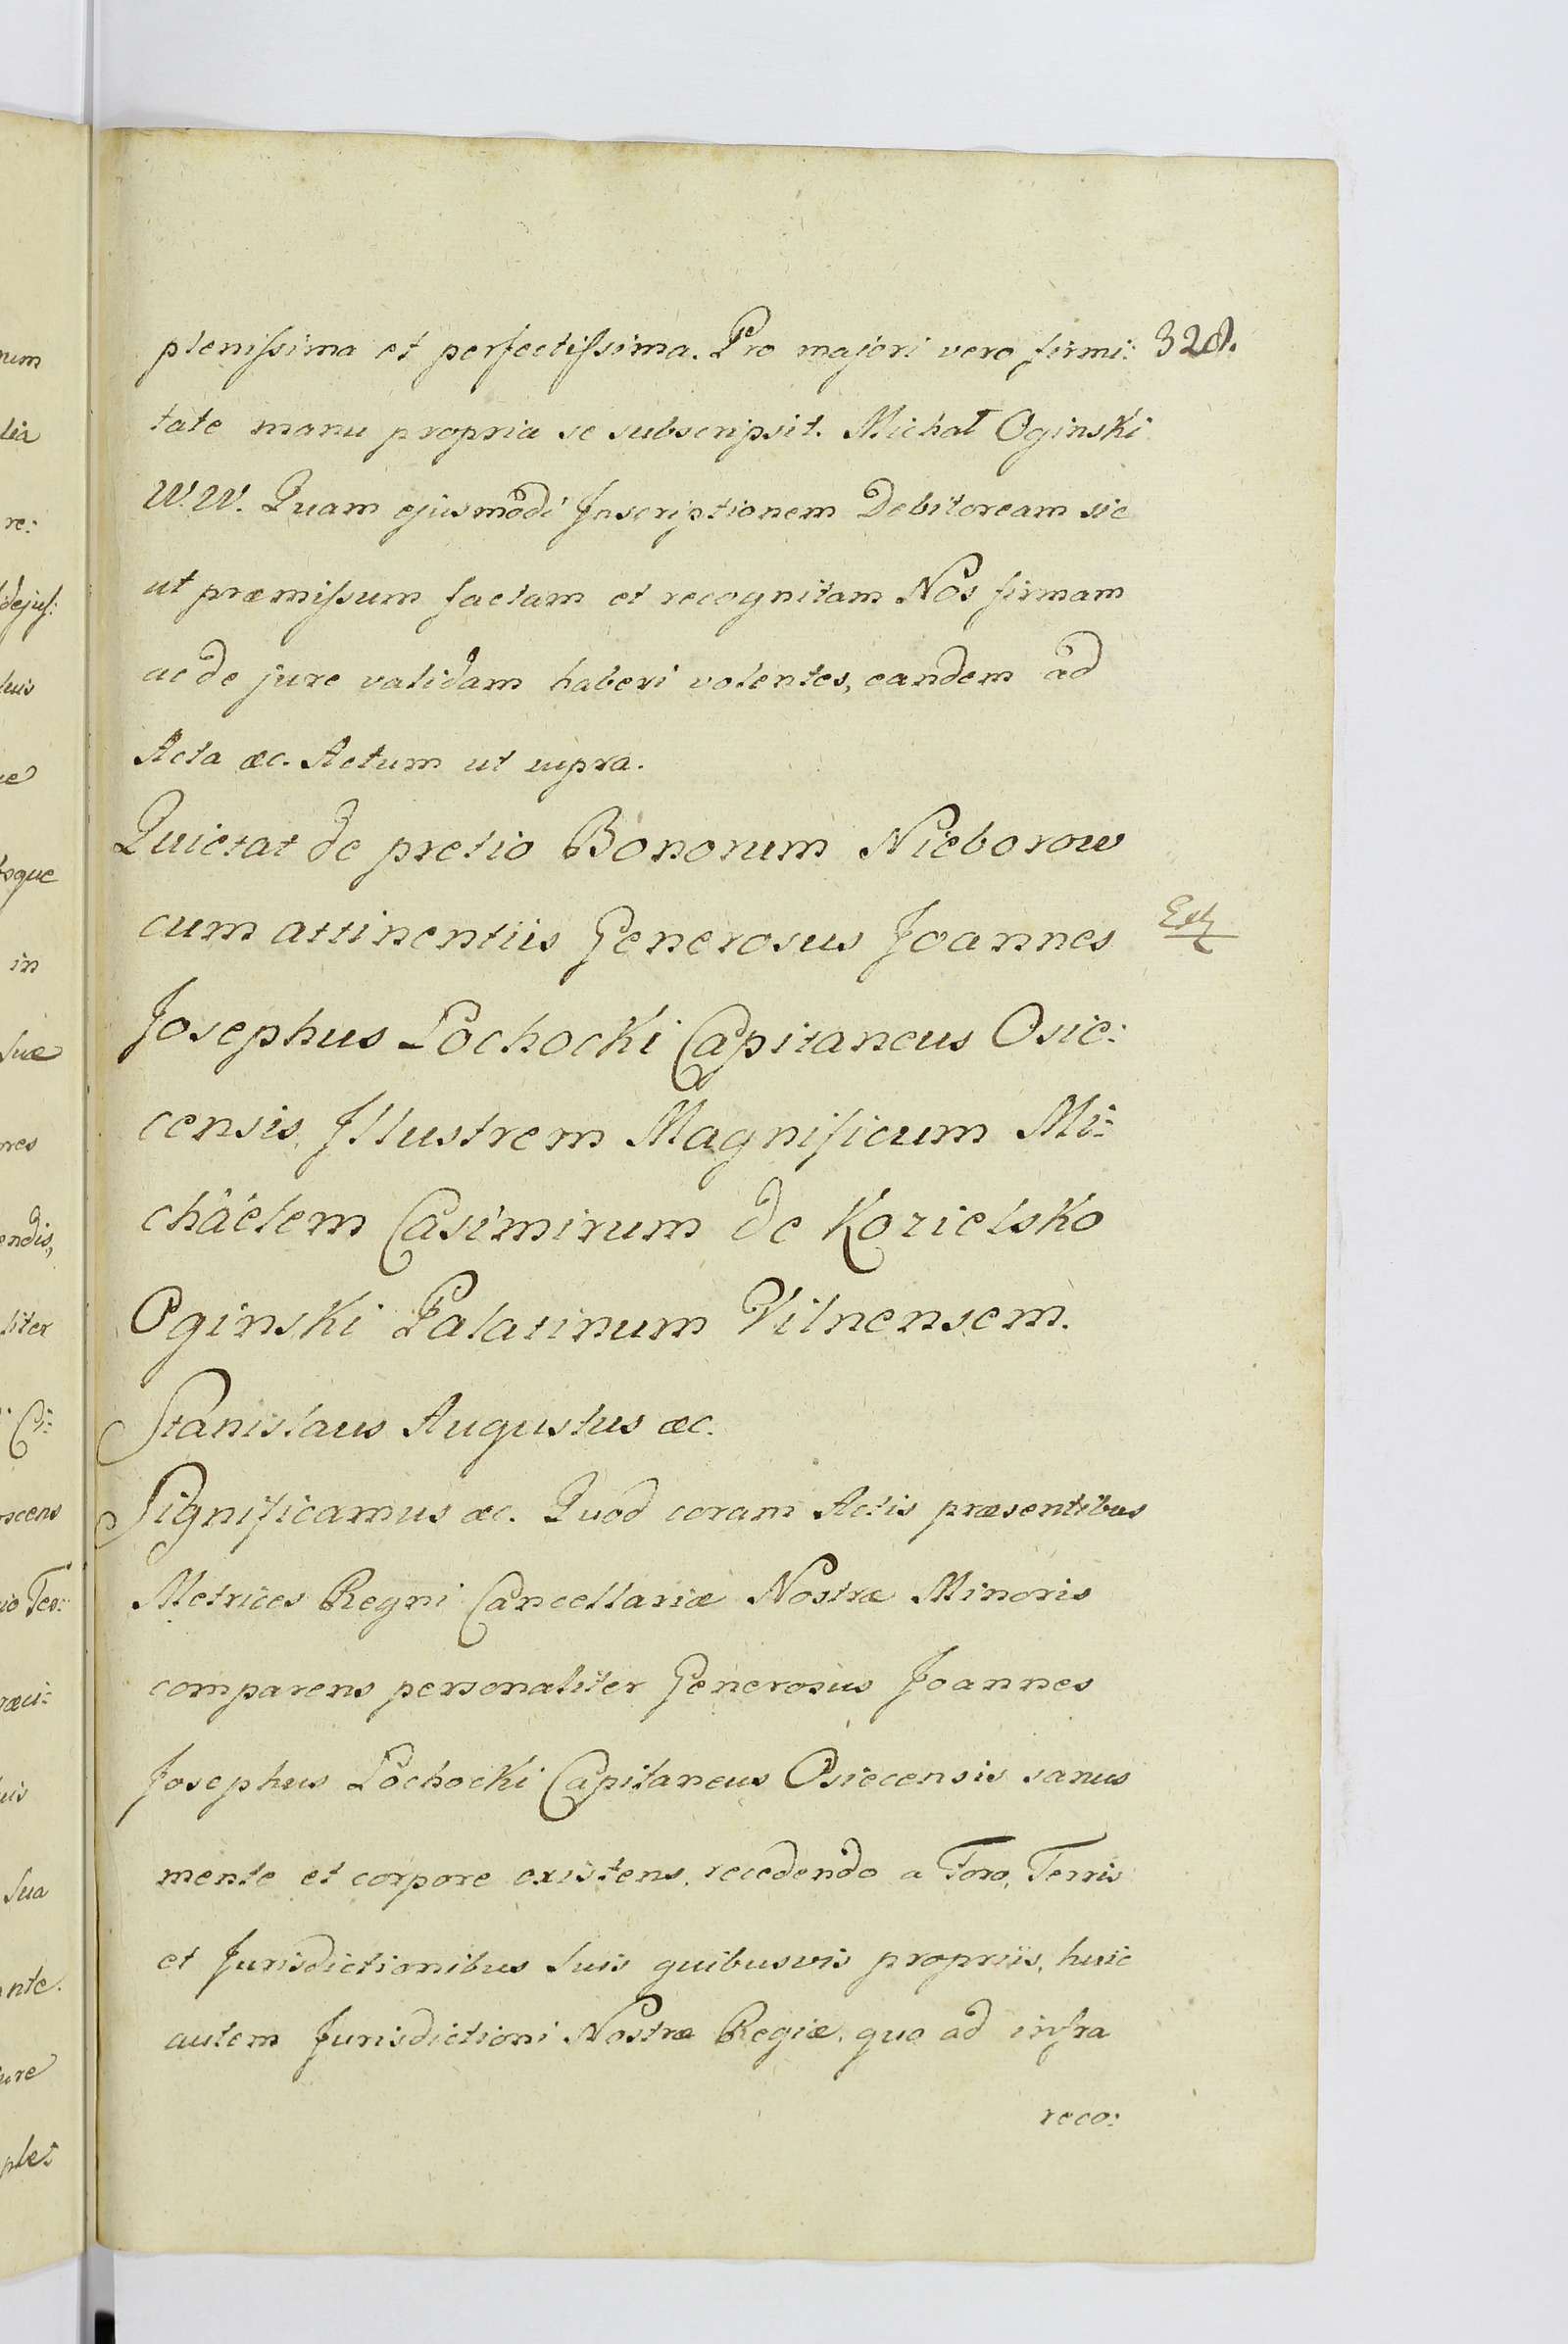 plenissima et perfectissima. Pro majori vero firmi: 328.
tate manu propria se subscripsit. Michał Oginski
W. W. Quam ejusmodi Inscriptionem Debitoream sic
ut præmissum factam et recognitam Nos firmam
ac de jure validam haberi volentes, eandem ad
Acta æc. Actum ut supra.
Quietat de pretio Bonorum Nieborow
cum attinentiis Generosus Joannes
Josephus Łochocki Capitaneus Osie:
censis, Illustrem Magnificum Mi:
chäelem Casimirum de Kozielsko
Oginski Palatinum Vilnensem.
Stanislaus Augustus æc.
Significamus æc. Quod coram Actis præsentibus
Metrices Regni Cancellariæ Nostræ Minoris
comparens personaliter Generosus Joannes
Josephus Łochocki Capitaneus Osiecensis sanus
mente et corpore existens, recedendo a Foro, Terris
et Jurisdictionibus suis quibusvis propriis, huic
autem Jurisdictioni Nostræ Regiæ, quo ad infra
reco:
num
lia
re:
dejus:
in
suæ
endis,
liter
Ci:
sua